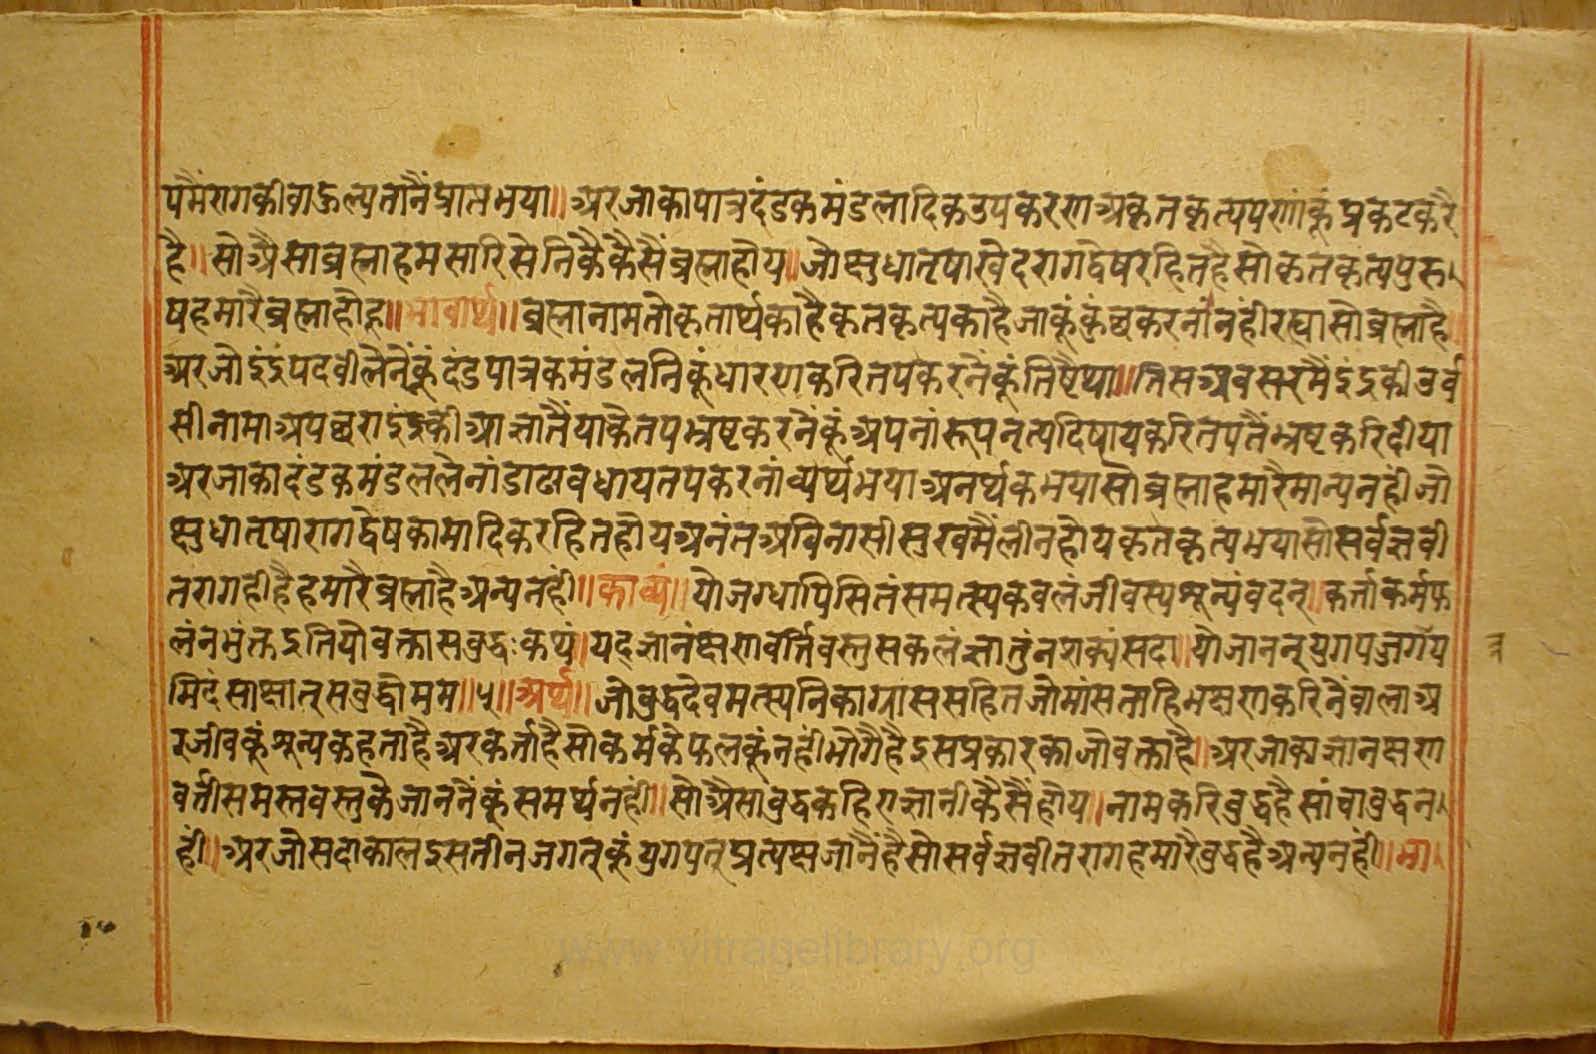 पमैंरागकीवाऊल्यतानैंप्राप्तभया॥ अरजाकापात्रदंडकमंडलादिकउपकरणअकृतकृत्यपणांकूंप्रकटकरै
है॥ सोअैसाब्रह्माहमसारिसेनिकैकैसैंब्रह्माहोय॥ जोक्षुधातृषाखेदरागद्वेषरहितहैसोकृतकृत्यपुरु
षहमारैब्रह्माहोहू॥ भावार्थ॥ ब्रह्मानामतोकृतार्थकाहैकृतकृत्यकाहैजाकूंकुंछकरनांनंहीरह्यासोब्रह्माहै
अरजोइंद्रपदवीलैनेंकूंदंडपात्रकमंडलनिकूंधारणकरितपकरनेंकूंतिष्टैथा॥ तिसअवसरमैंइंद्रकीउर्व
सीनामाअपछराइंद्रकीआज्ञातैंयाकैतपभ्रष्टकरनेंकूंअपनांरूपनृत्यदिषायकरितपतैंभ्रष्टकरिदीया
अरजाकादंडकमंडललैनांडाढावधायतपकरनांव्यर्थभयाअनर्थकभयासोब्रह्माहमारैमान्यनहीं जो
क्षुधातृषारागद्वेषकामादिकरहितहोयअनंतअविनासीसुखमैंलीनहोयकृतकृत्यभयासोसर्वज्ञवी
तरागहीहैहमारैब्रह्माहैअन्यनहीं॥ काव्यं॥ योजग्धापिसितंसमत्स्यकवलंजीवस्यशून्यंवदन्। कर्त्ताकर्मफ
लंनभुंक्तइतियोवक्तासबुद्धःकथं। यद्ज्ञानंक्षणवर्त्तिवस्तुसकलंज्ञातुंनशक्यंसदा॥ योजाननयुगपज्जगत्रय
मिदंसाक्षात्सबुद्धोमम॥५॥ अर्थ॥ जोबुद्धदेवमत्स्यनिकाग्राससहितजोमांसताहिभक्षणकरिनेंवालाअ
रजीवकूंशून्यकहताहैअरकर्त्ताहैसोकर्मकेफलकूंनहीभोगैहैइसप्रकारकाजोवक्ताहै॥ अरजाकाज्ञानक्षण
वर्तीसमस्तवस्तुकैजाननैंकूंसमर्थनहीं॥ सोअैसांबुद्धकहिएज्ञानीकैसैंहोय॥ नामकरिबुद्धहैसांचाबुद्धन
हीं॥ अरजोसदाकालइसतीनजगत्कूंयुगपत्प्रत्यक्षजांनैंहैसोसर्वज्ञवीतरागहमारैबुद्धहैअन्यनहीं॥ भा
www.vitragelibrary.org